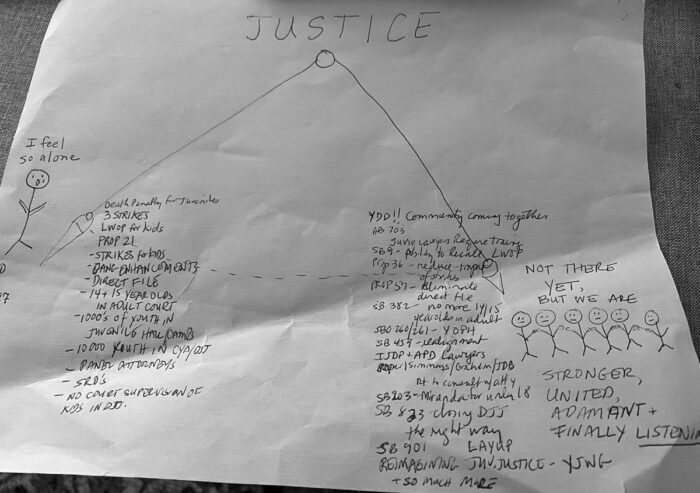 JUSTICE
I feel
so alone
Death Penalty for Juveniles
3 STRIKES
LWOP for kids
PROP 21
- STRIKES for kids
- GANG ENHANCEMENTS
DIRECT FILE
- 14 + 15 YEAR OLDS
IN ADULT COURT
- 1000'S OF YOUTH IN
JUVENILE HALL/CAMPS
- 10000 YOUTH IN CYA/DJJ
- PANEL ATTORNEYS
- SRO's
- NO COURT SUPERVISION OF
KIDS IN DJJ.
YDD!! Community coming together
AB 703
Juve lawyers Require training
SB9 - Ability to Recall LWOP
Prop 36 - reduce
of strikes
PROP 57 - Eliminate
direct file
SB 382 - no more 14/15
year olds in adult
SB 260/261 - YOPH
SB 439 - realignment
IJDP + APD Lawyers
Roper/Simmons/Graham/JDB
Rt to consult w/ atty
SB 203 - Miranda for under 18
SB 823 closing DJJ
the right way
SB 901 LAYUP
REIMAGINING JUV. JUSTICE - YJWG
+ SO MUCH MORE
NOT THERE
YET,
BUT WE ARE
STRONGER,
UNITED,
ADAMANT +
FINALLY LISTENIN